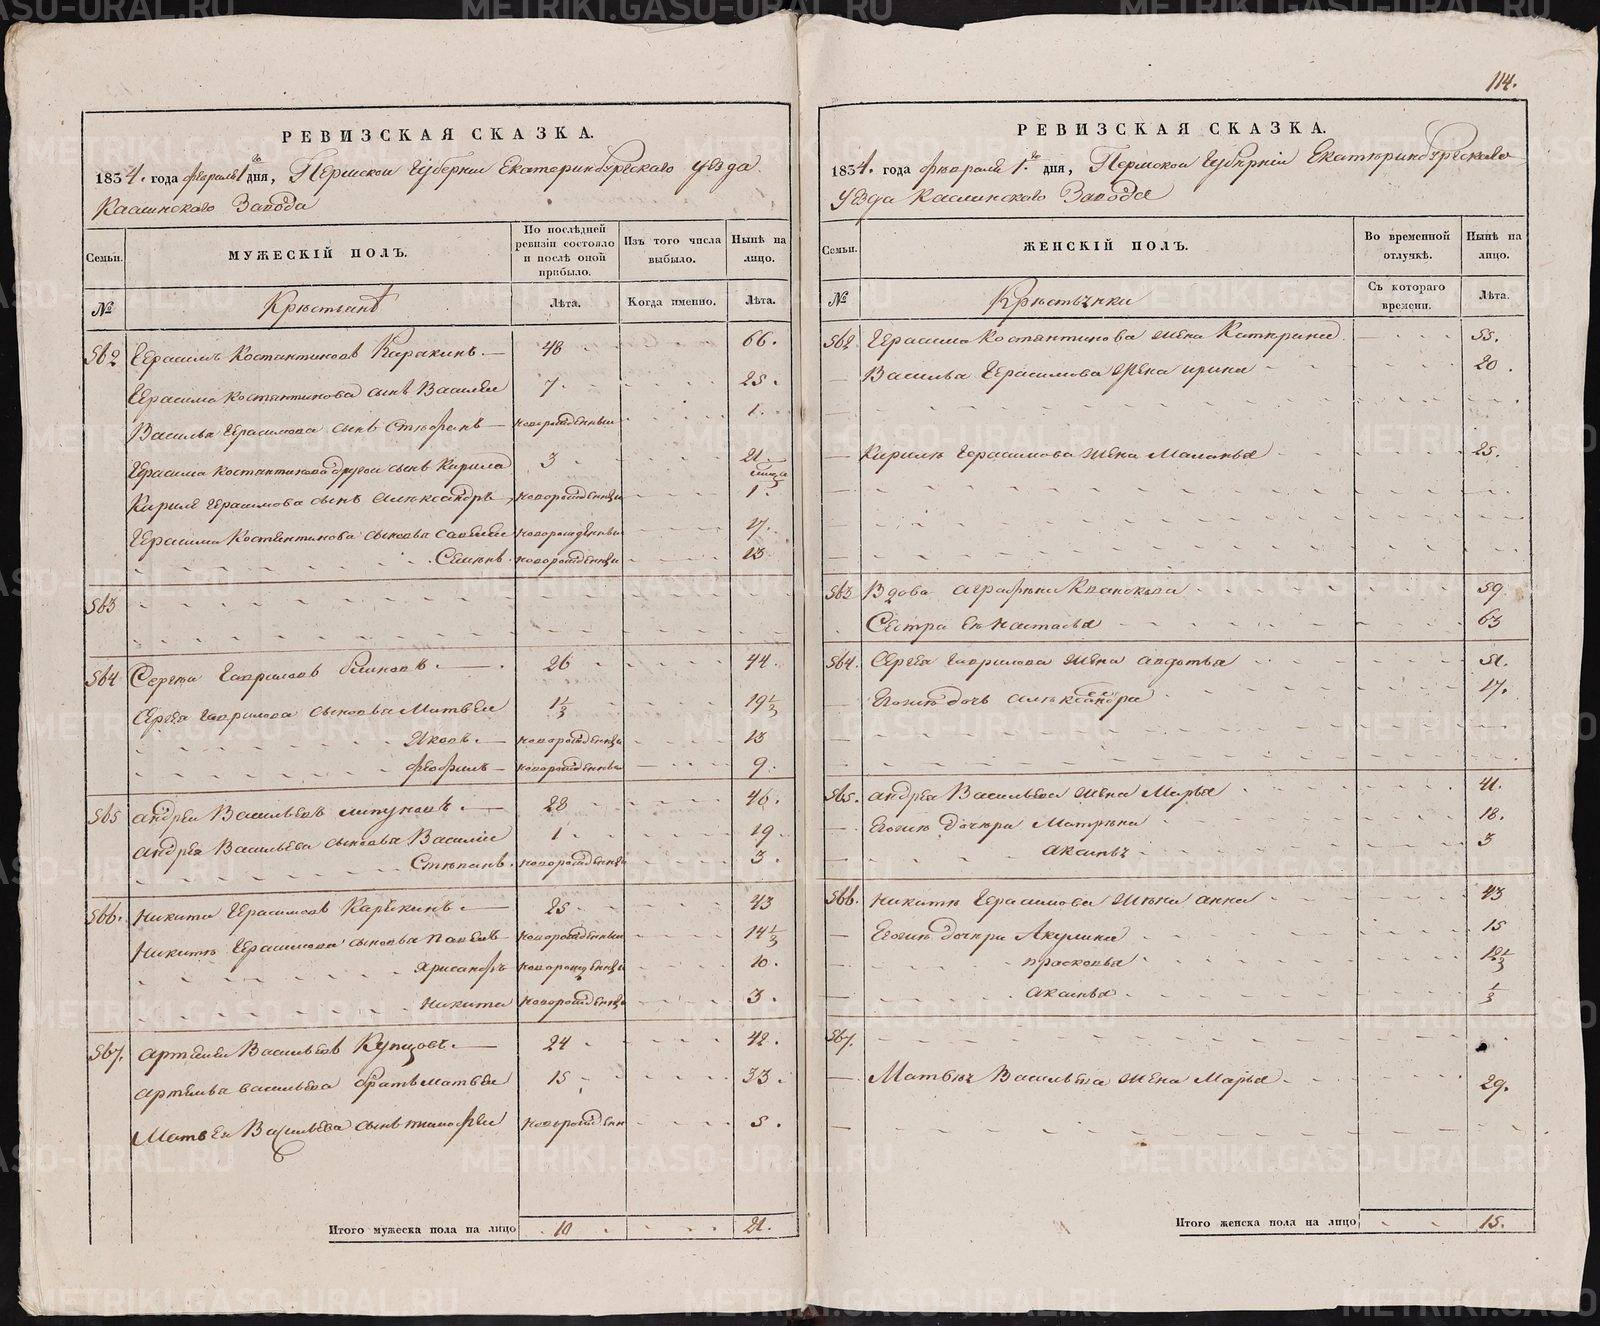 114.
РЕВИЗСКАЯ СКАЗКА.
1834. года февраля 1го дня, Пермской Губернии Екатеринбургскаго уезда
Каслинскаго Завода
Семьи.
МУЖЕСКІЙ ПОЛЪ.
По послѣдней ревизіи состояло и послѣ оной прибыло.
Изъ того числа выбыло.
Нынѣ на лицо.
№
Крестьянъ
Лѣта.
Когда именно.
Лѣта.
562 Герасимъ Костантиновъ Карякинъ 48 66.
Герасима Костянтинова сынъ Василеи 7 25.
Василья Герасимова сынъ Стефанъ новорожденныи 1.
Герасима Костянтинова другои сынъ Кирила 3 21
Кирилы Герасимова сынъ Александръ новорожденны 1.
Герасима Костянтинова сыновья Савелеи новорожденны 17.
Семенъ новорожденны 13
563
564 Сергеи Гавриловъ 26 44.
Сергея Гаврилова сыновья Матвеи 1 1/3 19 1/3
Яковъ новорожденны 13
Феофилъ новорожденны 9.
565 Андреи Васильевъ 28 46.
Андрея Васильева сыновья Василіи 1 19
Степанъ новорожденны 3.
566. Никита Герасимовъ Карякинъ 25 43
Никиты Герасимова сыновья Павелъ новорожденныи 14 1/3
Хрисанфъ новорожденны 10.
Никита новорожденны 3.
567. Артемеи Васильевъ Купцовъ 24 42.
Артемья Васильева братъ Матвеи 15 33.
Матвея Васильева сынъ Тимофеи новорожден 5.
Итого мужеска пола на лицо 10 21.
РЕВИЗСКАЯ СКАЗКА.
1834. года февраля 1го дня, Пермской Губерніи Екатеринбургскаго
Уезда Каслинскаго Завода
Семьи.
ЖЕНСКІЙ ПОЛЪ.
Во временной отлучкѣ.
Нынѣ на лицо.
№
Крестьянки
Съ котораго времени.
Лѣта.
562 Герасима Костянтинова жена Катерина 55.
Василья Герасимова жена Ирина 20.
Кирилы Герасимова жена Маланья 25.
563 Вдова Аграфена 59
Сестра ея Настасья 63
564. Сергея Гаврилова жена Авдотья 51.
Егожъ дочь Александра 17.
565. Андрея Васильева жена Марья 41.
Егожъ дочери Матрена 18.
Аксинья 3
566. Никиты Герасимова жена Анна 43
Егожъ дочери Акулина 15
Прасковья 12 1/3
Аксинья 1/3
567.
Матвея Васильева жена Марья 29.
Итого женска пола на лицо 15.